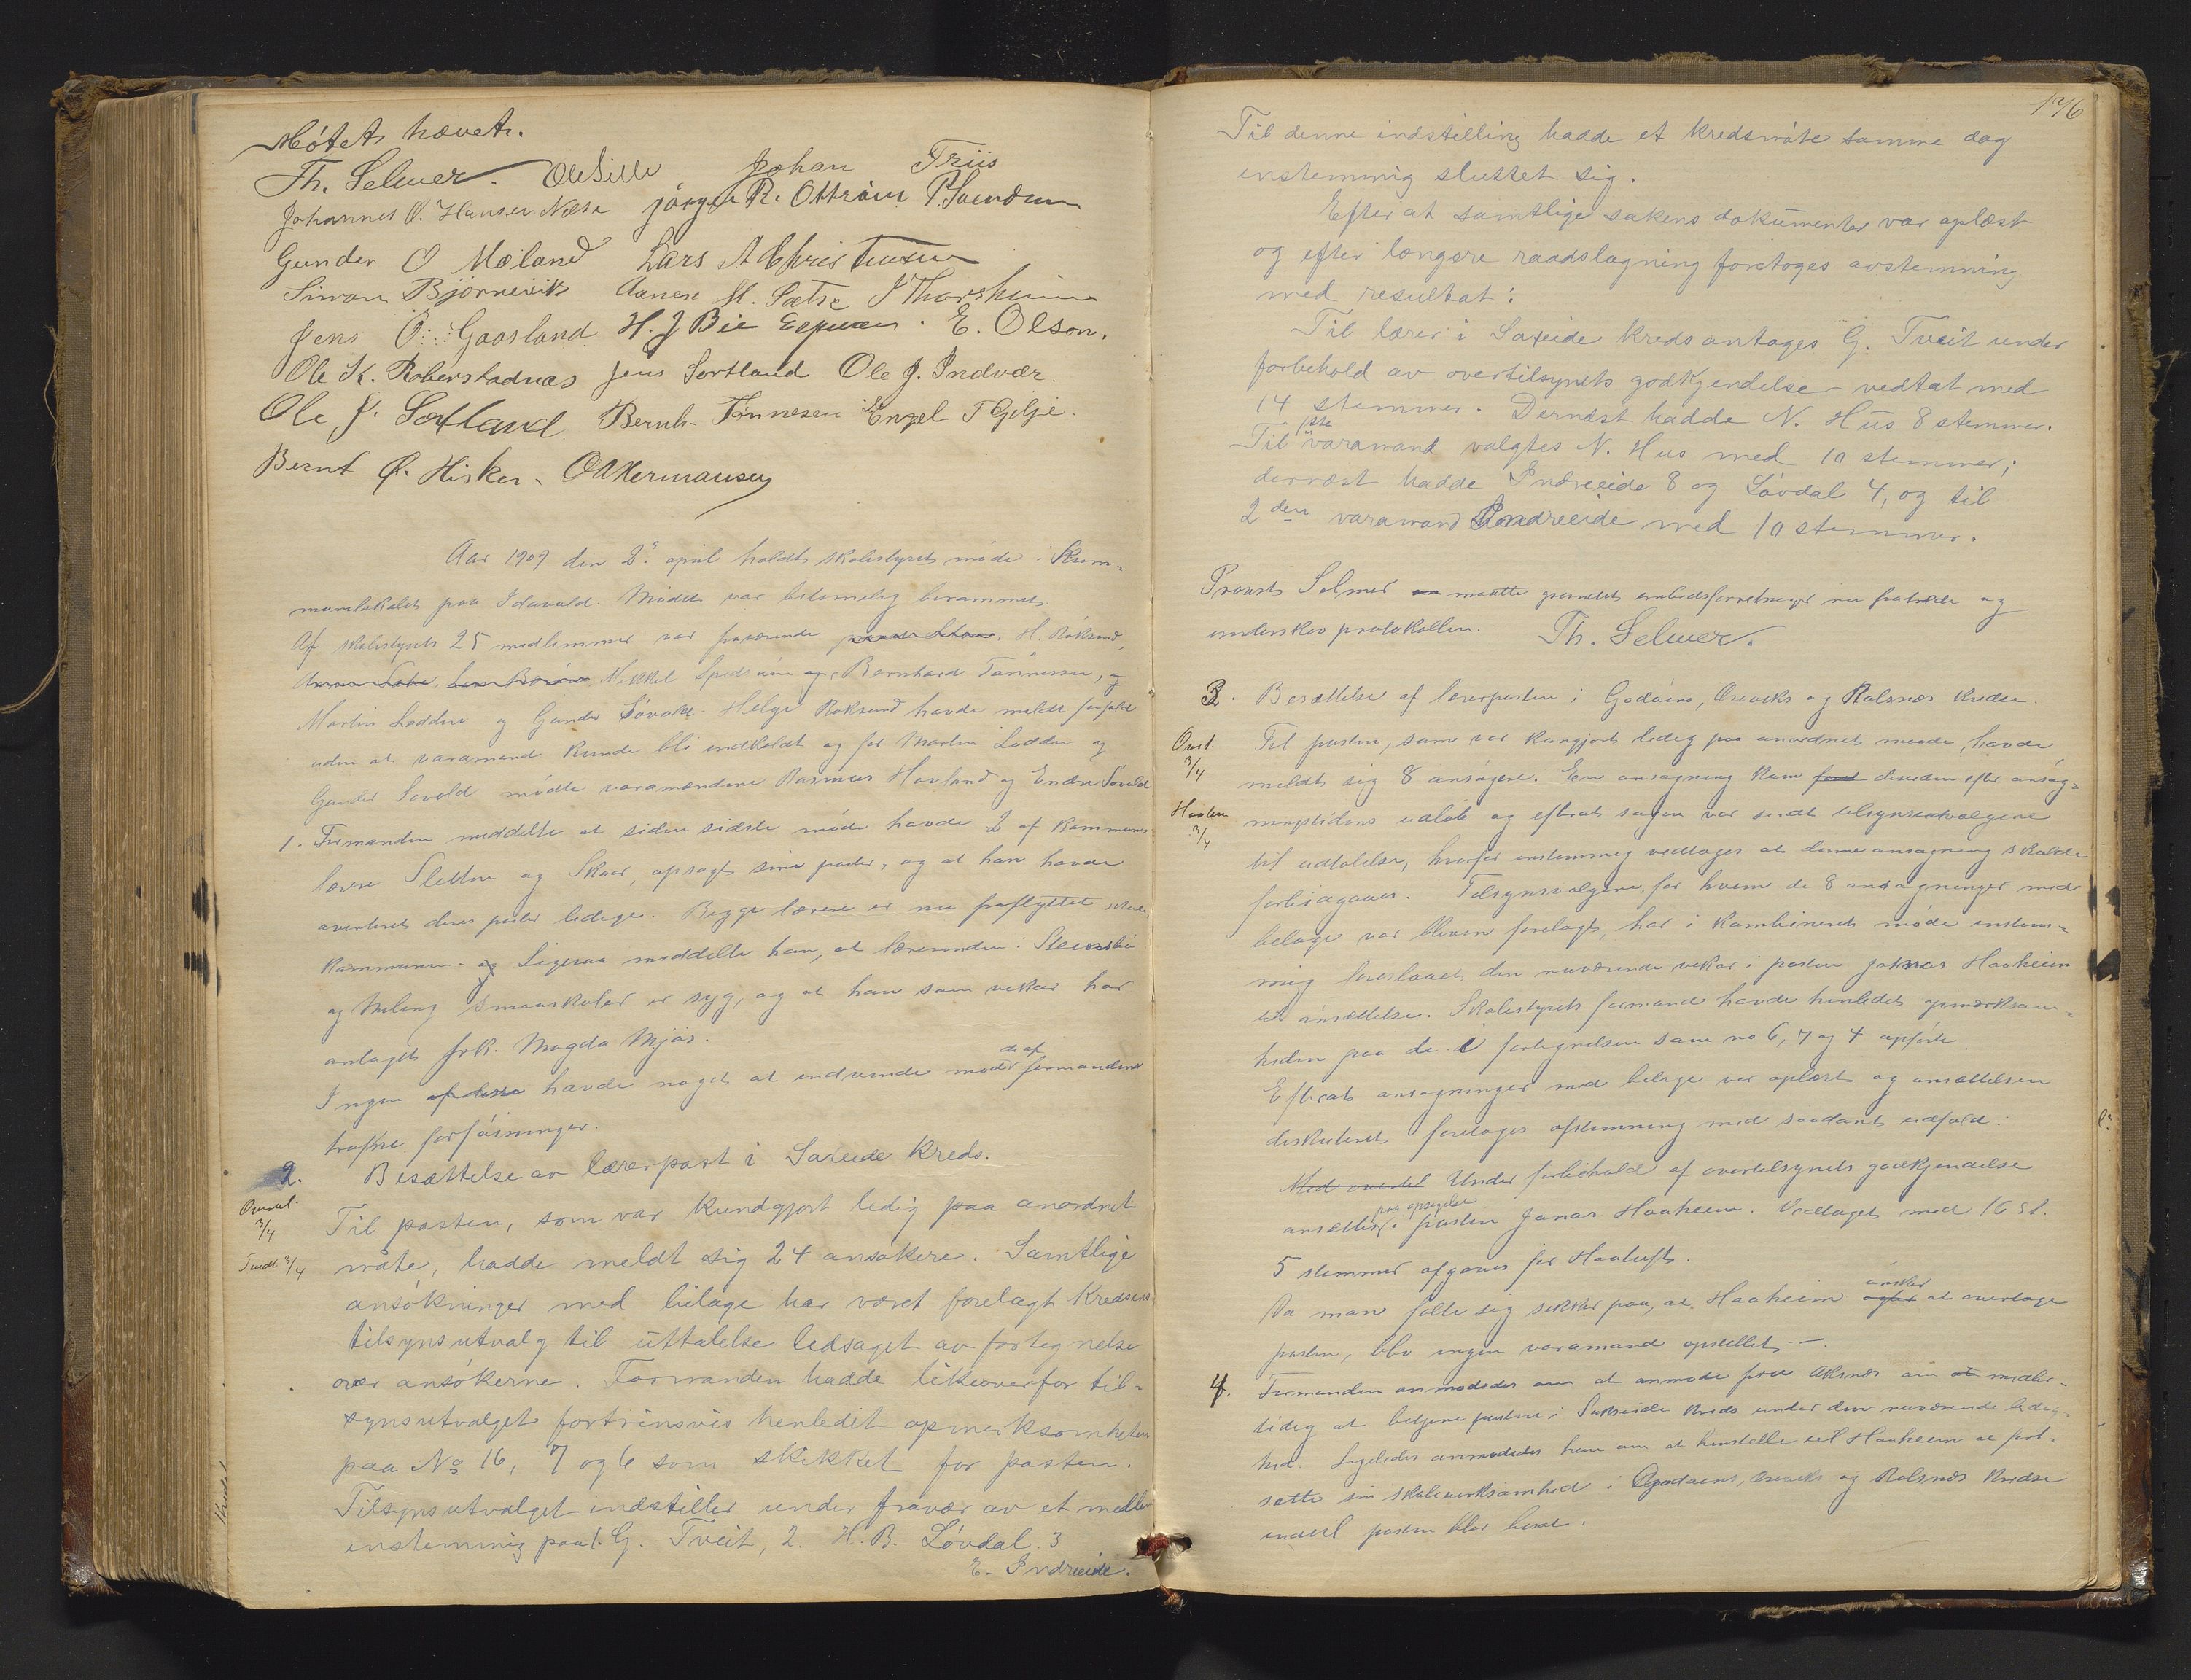 Mötet hævet.
Th. Selmer. Ole Lillebø Johan Friis
Johannes O. Hansen Næse Jörgen R. Ottröm P. Svendsen
Gunder O Mæland Lars A Christensen
Simon Björnevik Aanen M. Sætre J Thorsheim
Jens O. Gaasland H. J Bie E. Olson.
Ole K. Roberstadnæs Jens Sortland Ole J. Indvær.
Ole J. Sortland Bernh. Tönnesen Engel T Gilje.
Bernt Ø. Hisken. O A Hermansen
Aar 1909 den 2. april holdt skolestyret möde i Kom-
munelokalet paa Idavold. Mödet var betimelig berammet.
Af skolestyrets 25 medlemmer var fraværende H. Röksund,
Mikkel og Bernhard Tönnessen, og
Martin Lodden og Gunder Sövold. Helge Röksund havde meldt forfald
uden at varamand kunde bli indkaldt og for Martin Lodden og
Gunder Sövold mödte varamændene Rasmus Hovland og Endre Sövold
1. Formanden meddelte at siden sidste möde havde 2 af kommunens
lærere Sletten og Skaar, opsagt sine poster, og at han havde
averteret deres poster ledige. Begge lærere er nu fraflyttet
kommunen. og Ligesaa meddelte han, at lærerinden i
og Meling smaaskoler er syg, og at han som vikar har
antaget frk. Magda Mjös.
Ingen af disse havde noget at indvende mod de af formanden
trufne forföininger.
2. Besættelse av lærerpost i Sæteide kreds.
Overtil. 3/4
Tveit 3/4
Til posten, som var kundgjort ledig paa anordnet
måte, hadde meldt sig 24 ansökere. Samtlige
ansökninger med bilage har været forelagt kredsens
tilsynsutvalg til uttalelse ledsaget av fortegnelse
over ansökerne. Formanden hadde likeoverfor til-
synsutvalget fortrinsvis henledet opmerksomheten
paa No 16, 7 og 6 som skikket for posten.
Tilsynsutvalget indstiller under fravær av et medlem
enstemmig paa 1. G. Tveit, 2. H. B. Lövdal 3
E. Indreeide.
176
Til denne indstilling hadde et kredsmöte samme dag
enstemmig sluttet sig.
Efterat samtlige sakens dokumenter var oplæst
og efter længere raadslagning foretoges avstemning
med resultat:
Til lærer i Sæteide kreds antages G. Tveit under
forbehold av overtilsynets godkjendelse – vedtat med
14 stemmer. Dernæst hadde N. Hus 8 stemmer.
Til 1ste varamand valgtes N. Hus med 10 stemmer;
dernæst hadde Indreeide 8 og Lövdal 4, og til
2den varamand Indreeide med 10 stemmer.
Provst Selmer maatte grundet embedsforretninger nu fratræde og
underskrev protokollen. Th. Selmer.
3. Besættelse af lærerposten i Godöens, Osviks og Rolsnæs kredse.
Overt. 3/4
Haaheim 3/4
Til posten, som var kungjort ledig paa anordnet maade, havde
meldt sig 8 ansögere. En ansögning kom desuden efter ansög-
ningstidens udlöb og efterat sagen var sendt tilsynsudvalgene
til udtalelse, hvorfor enstemmig vedtoges at denne ansögning skulde
forbigaaes. Tilsynsvalgene, for hvem de 8 ansögninger med
bilage var bleven forelagt, har i kombineret möde enstem-
mig foreslaaet den nuværende vikar i posten Jonas Haaheim
til ansættelse. Skolestyrets formand havde henledet opmærksom-
heden paa de i fortegnelsen som no 6, 7 og 4 opförte.
Efterat ansögninger med bilage var oplæst og ansættelsen
diskuteret foretoges afstemning med saadant udfald:
Under forbehold af overtilsynets godkjendelse
ansættes paa opsigelse i posten Jonas Haaheim. Vedtaget med 16 st.
5 stemmer afgaves for Haatuft.
Da man fölte sig sikker paa, at Haaheim önsker at overtage
posten, blev ingen varamand opstillet. –
4. Formanden anmodedes om at anmode fru Aksnes om at midler-
tidig at betjene posten i Sæteide kreds under den nuværende ledig-
hed. Ligeledes anmodedes han om at henstille til Haaheim at fort-
sætte sin skolevirksomhed i Godöens, Osviks og Rolsnæs kredse
indtil posten blir besat.